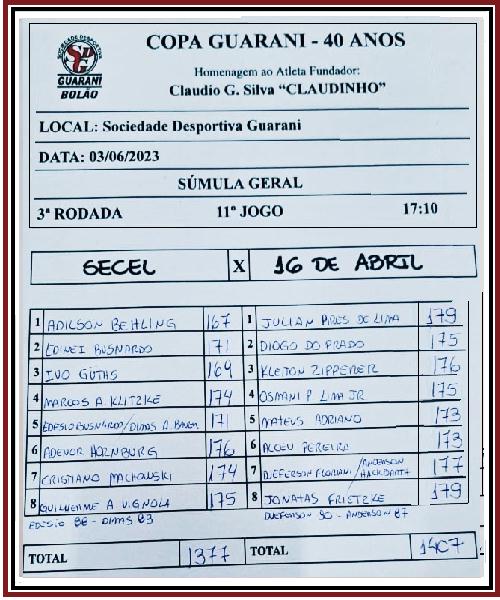 SOCIEDADE DESPORTIVA
SDG
GUARANI
BOLÃO
COPA GUARANI - 40 ANOS
Homenagem ao Atleta Fundador:
Claudio G. Silva “CLAUDINHO”
LOCAL: Sociedade Desportiva Guarani
DATA: 03/06/2023
SÚMULA GERAL
3ª RODADA 11º JOGO 17:10
SECEL X 16 DE ABRIL
1 ADILSON BEHLING 167 1 JULIAN PIRES DE LIMA 179
2 EDINEI BUSNARDO 171 2 DIOGO DO PRADO 175
3 IVO GÜTHS 169 3 KLEITON ZIPPERER 176
4 MARCOS A. KLITZKE 174 4 OSMANI P LIMA JR 175
5 EDESIO BUSNARDO/DIMAS A. 171 5 MATEUS ADRIANO 173
6 ADENOR HORNBURG 176 6 ALCEU PEREIRA 173
7 CRISTIANO MACHOWSKI 174 7 JEFERSON FLORIANI/ANDERSON HACKBARTH 177
8 GUILHERME A VIGNOLA 175 8 JONATAS FRIETZKE 179
EDESIO 88 - DIMAS 83 90 - ANDERSON 87
TOTAL 1377 TOTAL 1407